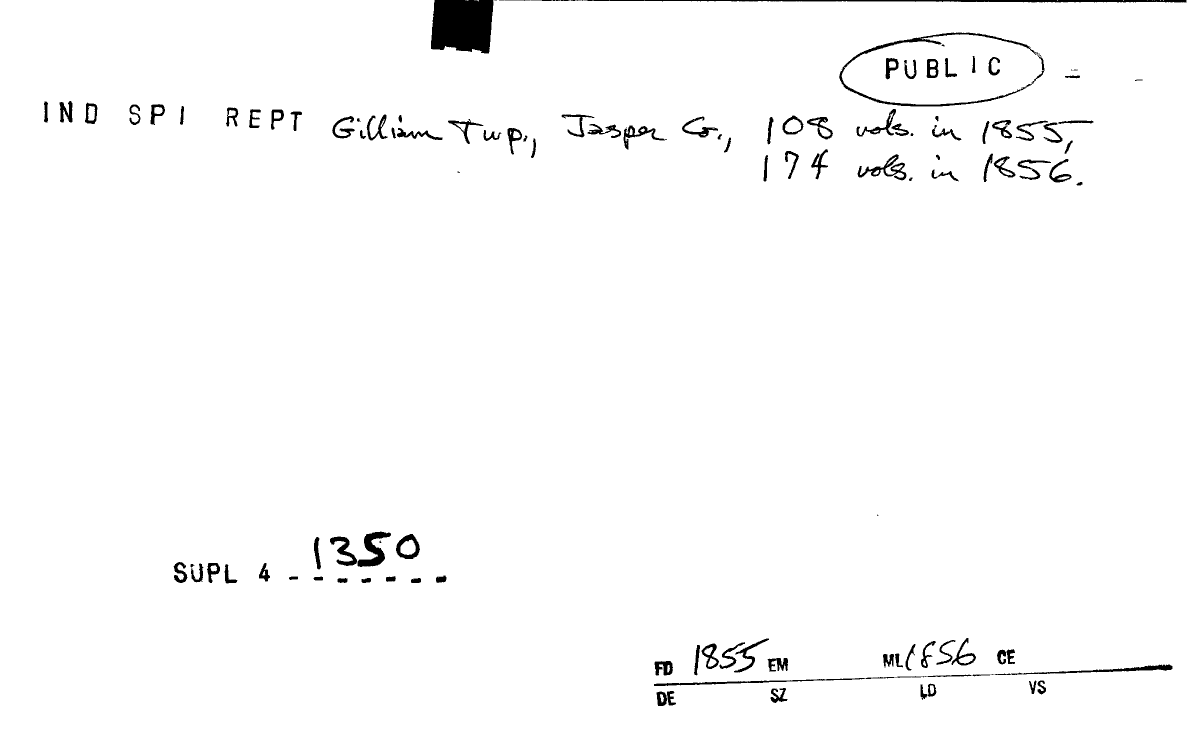 PUBLIC
IND SPI REPT Gilliam Twp., Jasper Co., 108 vols. in 1855,
174 vols. in 1856.
SUPL 4 - 1350
FD 1855 EM ML 1856 CE
DE SZ LD VS